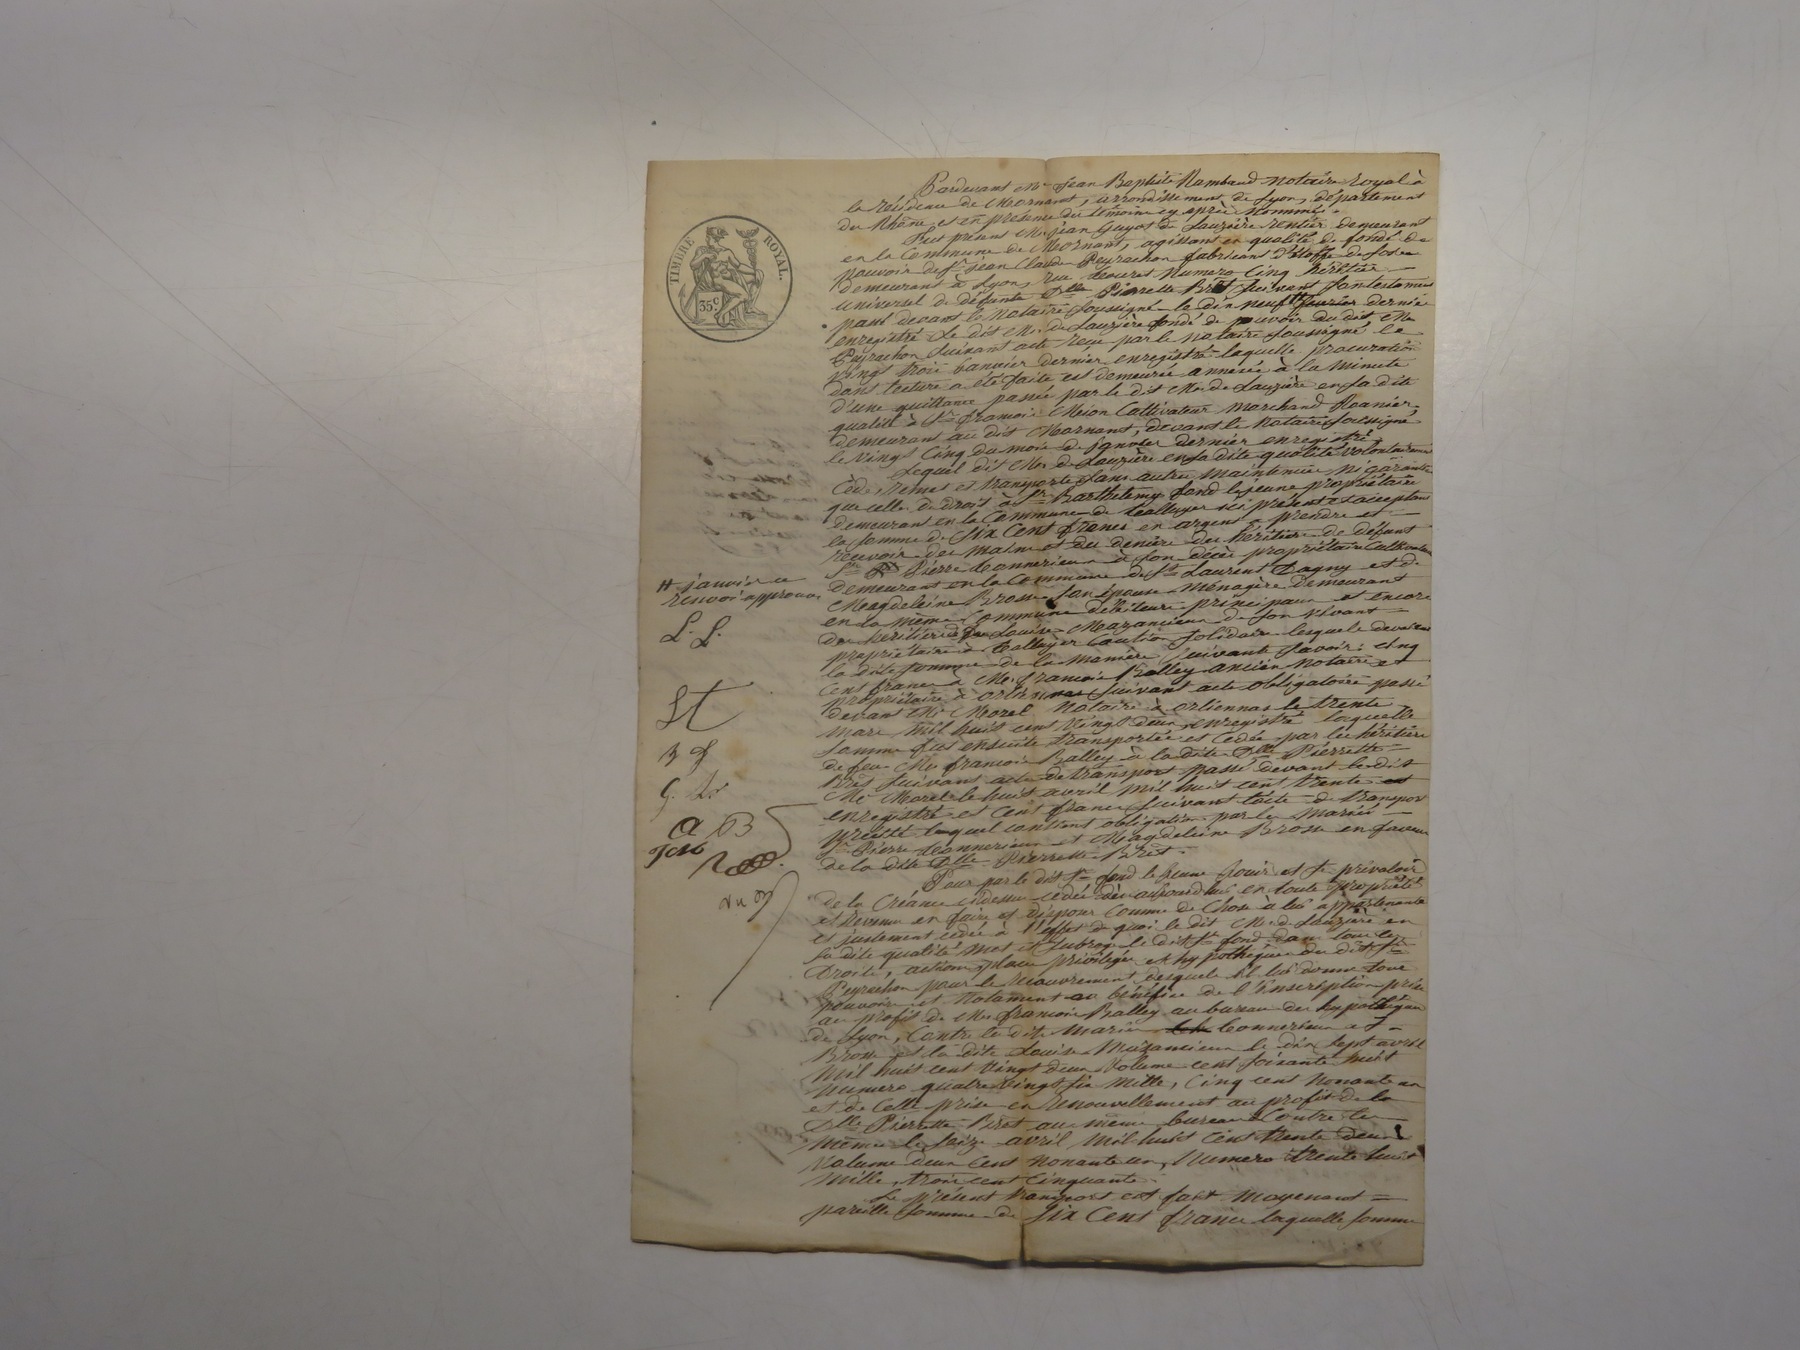 TIMBRE ROYAL.
35 c
Pardevant Me Jean Baptiste Rambaud Notaire Royal à
la résidence de Mornant, arrondissement de Lyon, département
du Rhône, et en présence des témoins cy après nommés.
Fut présent Mr Jean Guyot de Lauzière rentier demeurant
en la Commune de Mornant, agissant en qualité de fondé de
pouvoir de Sr Jean Claude Peyrachon fabricant d'étoffe de soie
demeurant à Lyon, rue Numero Cinq héritier
universel de défunte Dlle Pierrette Bret suivant son testament
passé devant le Notaire soussigné le dix neuf # dernier
enregistré. Le dit Mr de Lauzière fondé de pouvoir du dit Mr
Peyrachon suivant acte recu par le Notaire soussigné le
vingt trois Janvier dernier enregistré laquelle procuration
dont lecture a été faite est demeurée annéxée à la minute
d'une quittance passée par le dit Mr de Lauzière en sa dite
qualité à Sr françois Cultivateur Marchand
demeurant au dit Mornant, devant le Notaire soussigné
le vingt Cinq du mois de Janvier dernier enregistré.
Lequel dit Mr de Lauzière en sa dite qualité volontairement
Cède, remet et transporte sans autre maintenue ni garantie
que celle de droit à Sr Barthelemy fond le jeune propriétaire
demeurant en la Commune de Talluyer ici présent et acceptant
la somme de Six Cent francs en argent à prendre et
recevoir des mains et des deniers des héritiers de défunt
Sr Pierre Connerieux à son décès propriétaire Cultivateur
demeurant en la Commune de St Laurent Dagny et de
Magdeleine Brosse son épouse Ménagère demeurant
en la même Commune débiteurs principaux et encore
des héritiers de Louise Mazancieux de son vivant
propriétaire à Talluyer Caution solidaire lesquels devaient
la dite somme de la manière suivante savoir: cinq
Cent francs à Me françois Balley ancien Notaire et
propriétaire à Orliennas suivant acte obligatoire passé
devant Me Morel Notaire à Orliennas le trente
Mars mil huit cent vingt deux enregistré laquelle
somme fut ensuite transportée et Cedée par les héritiers
de feu Me françois Balley à la dite Dlle Pierrette
Bret suivant acte de transport passé devant le dit
Me Morel le huit avril mil huit cent trente
enregistré et Cent francs suivant l'acte de transport
précité lequel contient obligation par les Mariés
Sr Pierre Connerieux et Magdeleine Brosse en faveur
de la dite Dlle Pierrette Bret.
Pour par le dit Sr fond le jeune Jouir et se prévaloir
de la Créance cidessus cédée dès aujourdhui en toute propriété
et revenu en faire et disposer comme de Chose à lui appartenante
et justement cedée à l'effet de quoi le dit Mr de Lauzière en
sa dite qualité met et subroge le dit Sr fond dans tous les
Droits, actions, place privilèges et hypothèques du dit Sr
Peyrachon pour le recouvrement desquels il lui donne tous
pouvoirs et Notament au bénéfice de l'Inscription prise
au profit de Me françois Balley au bureau des hypothèques
de Lyon, Contre les dits Mariés Connerieux et
Brosse et la dite Louise Mazancieux le dix sept avril
Mil huit cent vingt deux Volume cent soixante huit
Numero quatre vingt six mille, Cinq cent nonante un
et de Celle prise en renouvellement au profit de la
Dlle Pierrette Bret au même bureau Contre les
mêmes le seize avril Mil huit Cent trente deux
Volume deux Cent nonante un, Numero trente huit
mille, trois cent Cinquante.
Le présent transport est fait moyenant
pareille somme de Six Cent francs laquelle somme
# janvier
renvoi approuvé
L. L.
B f